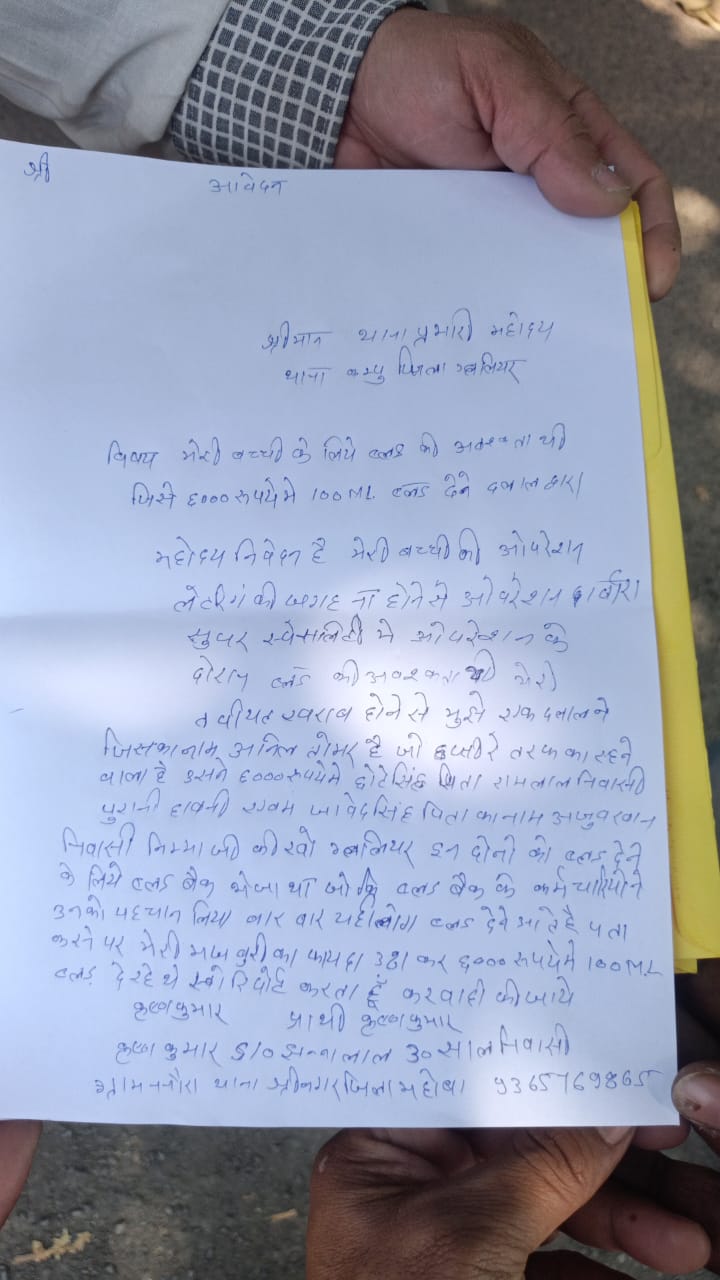 श्री
आवेदन
श्रीमान थाना प्रभारी महोदय
थाना कम्पु जिला ग्वालियर
विषय मेरी बच्ची के लिये ब्लड की अवश्कता थी
जिसे 6000 रूपये मे 100 ML ब्लड देने दलाल द्वारा
महोदय निवेदन है मेरी बच्ची की ओपरेशन
लेटरिंग की जगह ना होने से ओपरेशन
सुपर स्पेसलिटी मे ओपरेशन के
दोरान ब्लड की अवश्कता थी मेरी
तबीयत खराब होने से मुझे एक दलाल ने
जिसका नाम अनिल तोमर है जो तरफ का रहने
वाला है उसने 6000 रूपये मे छोटेसिंह पिता रामलाल निवासी
पुरानी छावनी एवम जावेदसिंह पिता का नाम
निवासी निम्मा जी की खो ग्वालियर इन दोनो को ब्लड देने
के लिये ब्लड बैंक भेजा था जो कि ब्लड बैंक के कर्मचारियो ने
उनको पहचान लिया बार बार यही लोग ब्लड देने आते है पता
करने पर मेरी मजबुरी का फायदा उठा कर 6000 रूपये मे 100 ML
ब्लड दे रहे थे रिपोर्ट करता हूँ करवाही की जाये
कृष्ण कुमार प्रार्थी कृष्ण कुमार
कृष्ण कुमार S/O झन्नालाल 30 साल निवासी
ग्राम ननौरा थाना श्रीनगर जिला महोबा 9365769865